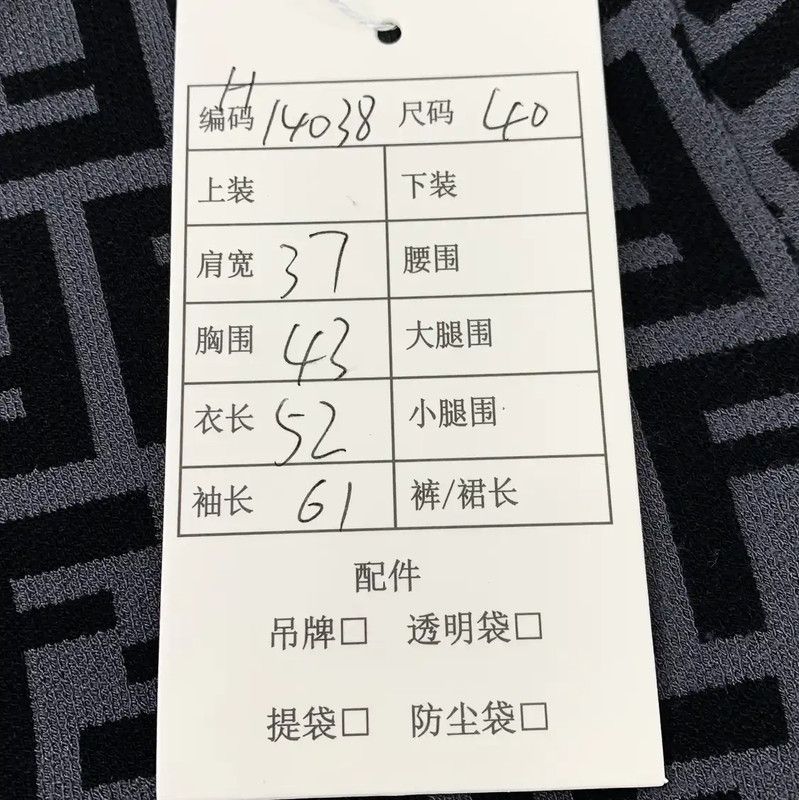 H
编码 14038 尺码 40
上装 下装
肩宽 37 腰围
胸围 43 大腿围
衣长 52 小腿围
袖长 61 裤/裙长
配件
吊牌□ 透明袋□
提袋□ 防尘袋□